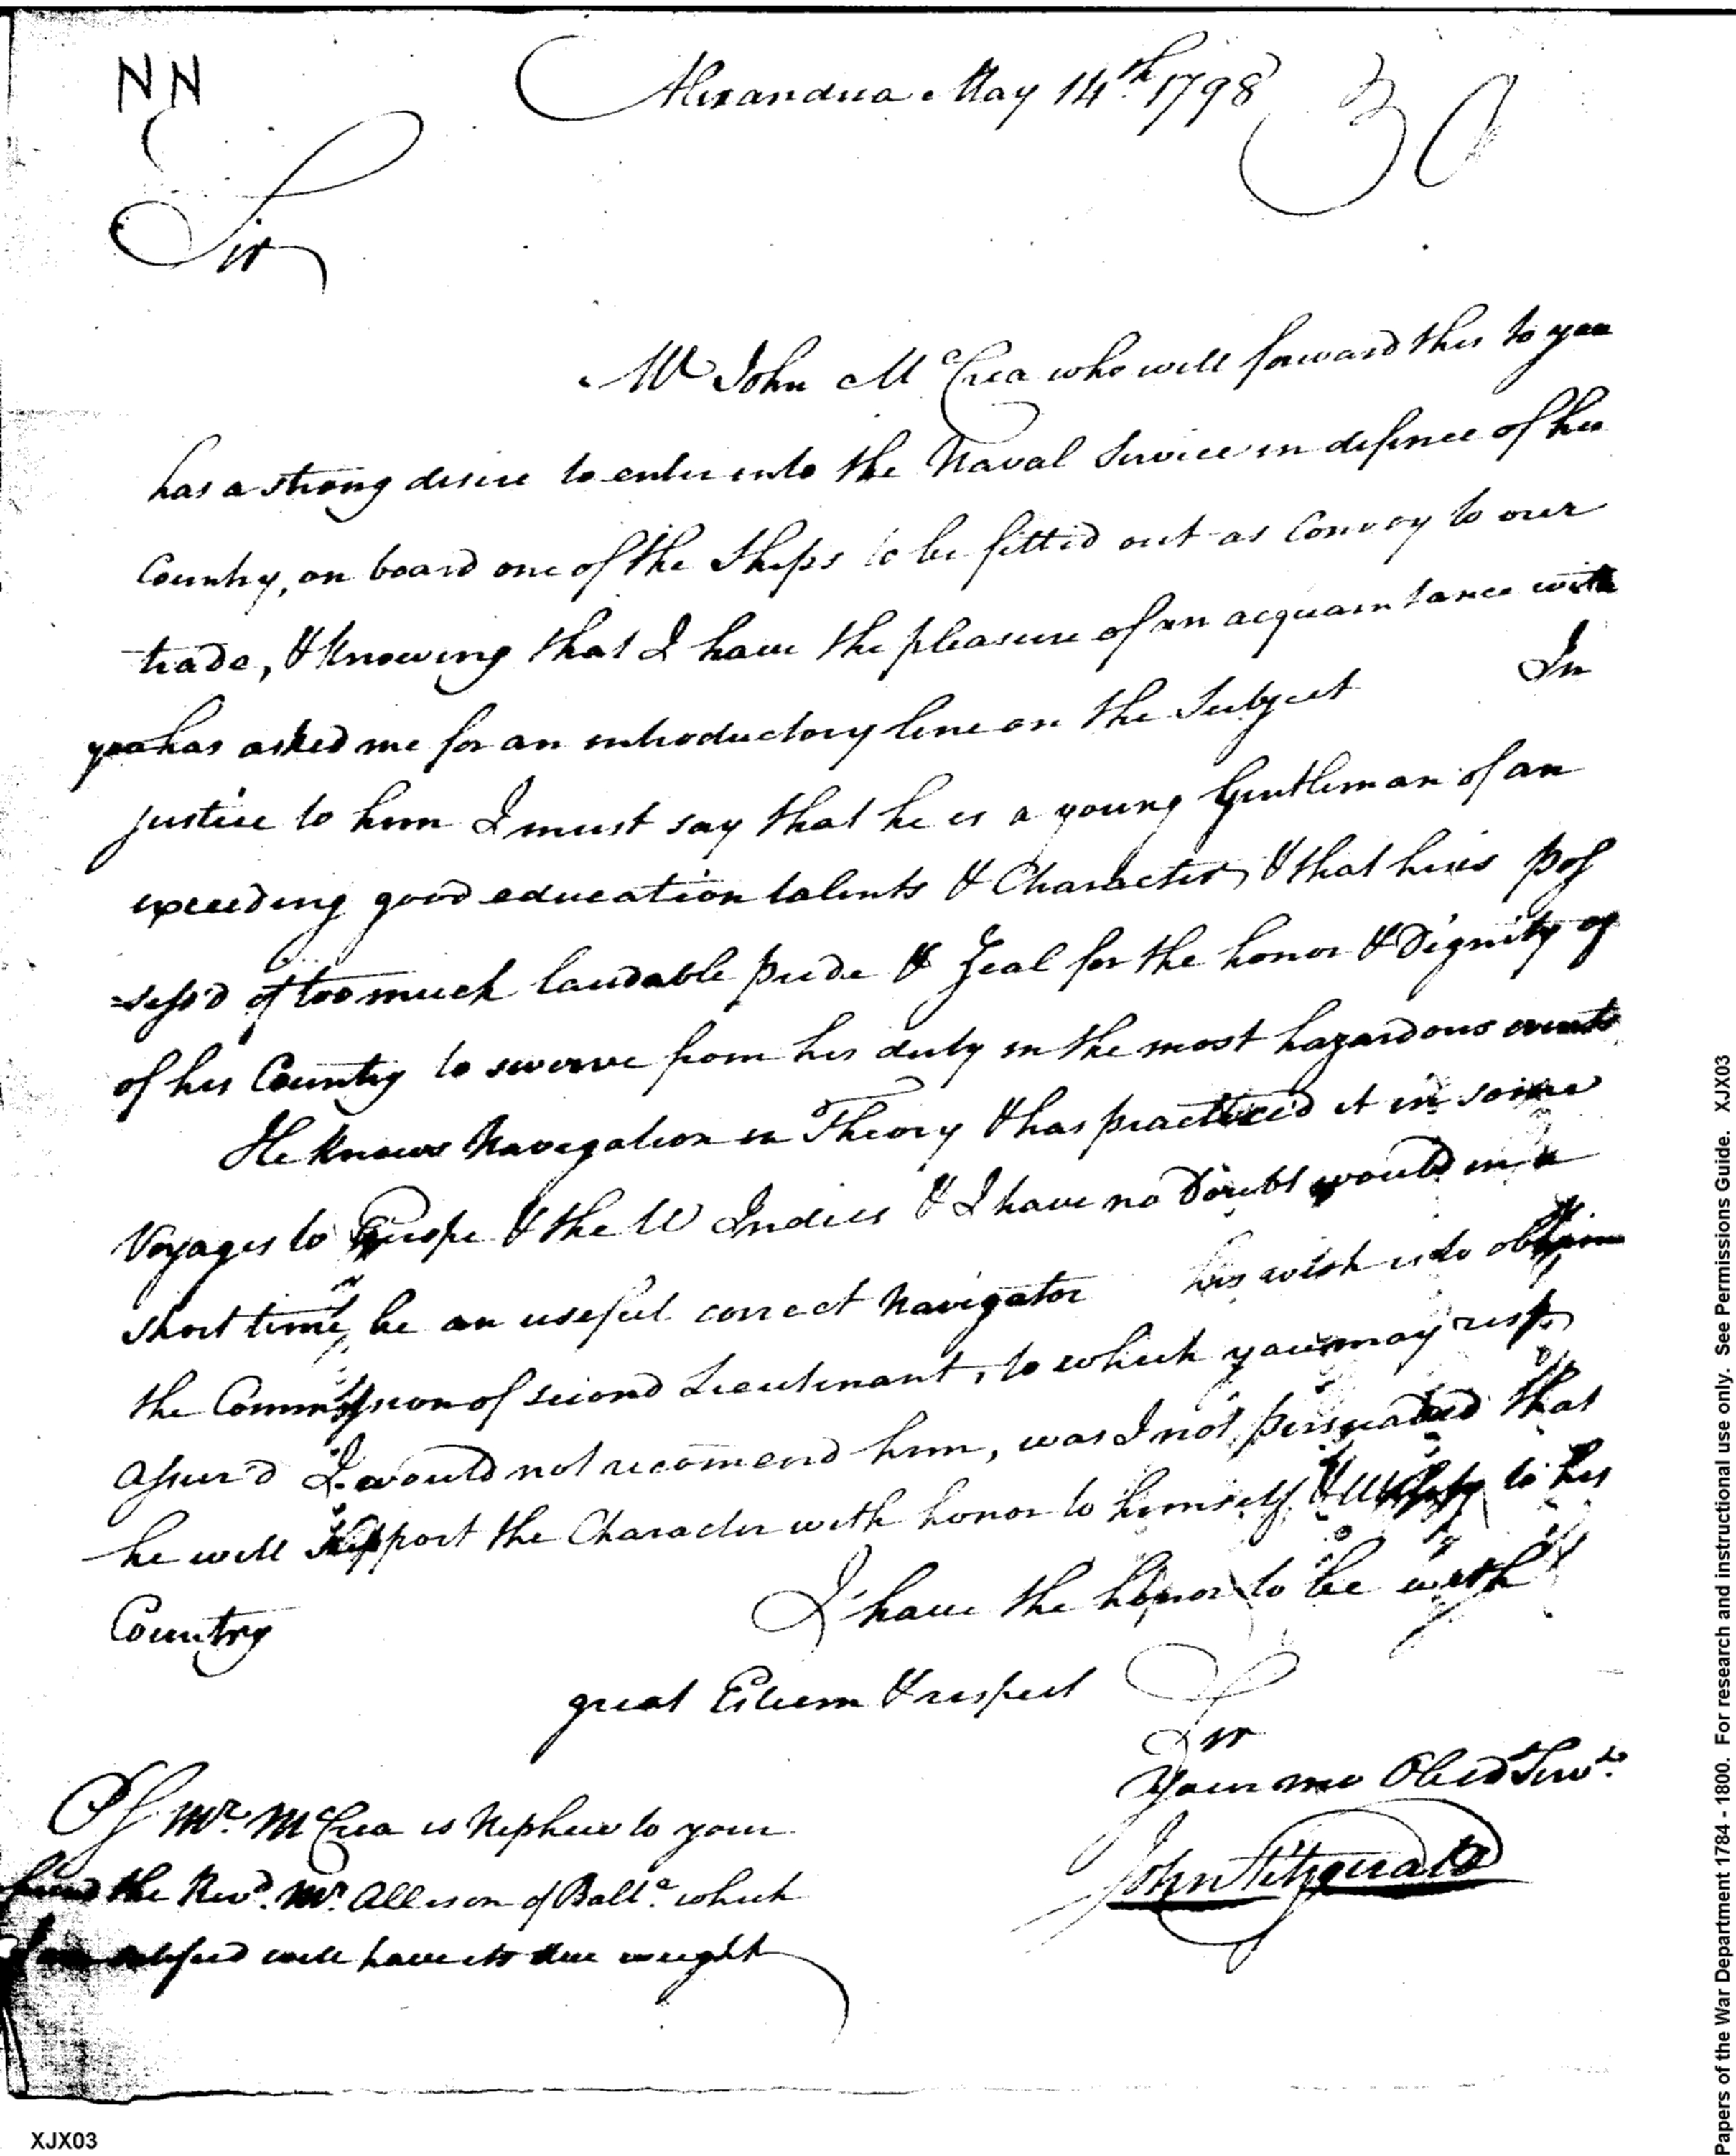 NN
Alexandria May 14th 1798
30
Sir
Mr John McCrea who will forward this to you
has a strong desire to enter into the Naval Service in defence of his
Country, on board one of the Ships to be fitted out as Convoy to our
trade, & knowing that I have the pleasure of an acquaintance with
you has asked me for an introductory line on the Subject In
justice to him I must say that he is a young Gentleman of an
exceeding good education talents & Character, & that he is pos
=sess'd of too much laudable pride & Zeal for the honor & Dignity of
of his Country to swerve from his duty in the most hazardous events
He knows Navigation in Theory & has practiced it in some
Voyages to Europe & the W Indies & I have no Doubt would in a
short time, be an useful correct Navigator his wish is to obtain
the Commission of second Lieutenant, to which you may rest
assur'd I would not recomend him, was I not persuaded that
he will support the Character with honor to himself & utility to his
Country
I have the honor to be with
great Esteem & respect
Sir
Your mo Obed Servt.
John Fitzgerald
PS Mr. McCrea is Nephew to your
friend the Revd. Mr. Allison of Balte. which
I am satisfied will have its due weight
XJX03
Papers of the War Department 1784 - 1800. For research and instructional use only. See Permissions Guide. XJX03